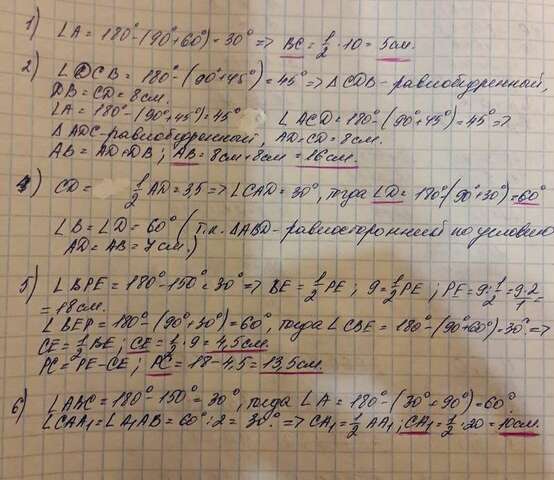 1) ∠A = 180° - (90° + 60°) = 30° => BC = 1/2 · 10 = 5см.
2) ∠DCB = 180° - (90° + 45°) = 45° => ΔCDB - равнобедренный,
DB = CD = 8см.
∠A = 180° - (90° + 45°) = 45° ∠ACD = 180° - (90° + 45°) = 45° =>
ΔADC - равнобедренный, AD = CD = 8см.
AB = AD + DB; AB = 8см + 8см = 16см.
4) CD = 1/2 AD = 3,5 => ∠CAD = 30°, тогда ∠D = 180° - (90° + 30°) = 60°
∠B = ∠D = 60° (т.к. ΔABD - равносторонний по условию
AD = AB = 7см.)
5) ∠BPE = 180° - 150° = 30° => BE = 1/2 PE; 9 = 1/2 PE; PE = 9 : 1/2 = 9·2/1 =
= 18см.
∠BEP = 180° - (90° + 30°) = 60°, тогда ∠CBE = 180° - (90° + 60°) = 30° =>
CE = 1/2 BE; CE = 1/2 · 9 = 4,5см.
PC = PE - CE; PC = 18 - 4,5 = 13,5см.
6) ∠ABC = 180° - 150° = 30°, тогда ∠A = 180° - (30° + 90°) = 60°
∠CAA₁ = ∠A₁AB = 60° : 2 = 30°. => CA₁ = 1/2 AA₁; CA₁ = 1/2 · 20 = 10см.